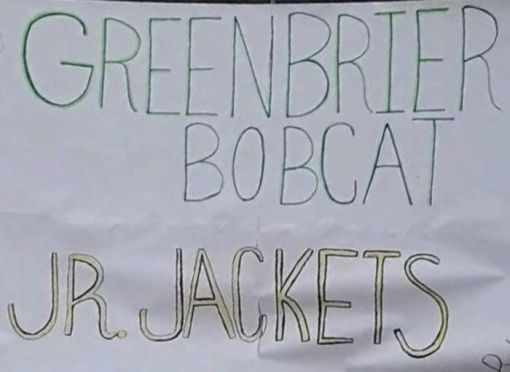 GREENBRIER
BOBCAT
JR. JACKETS